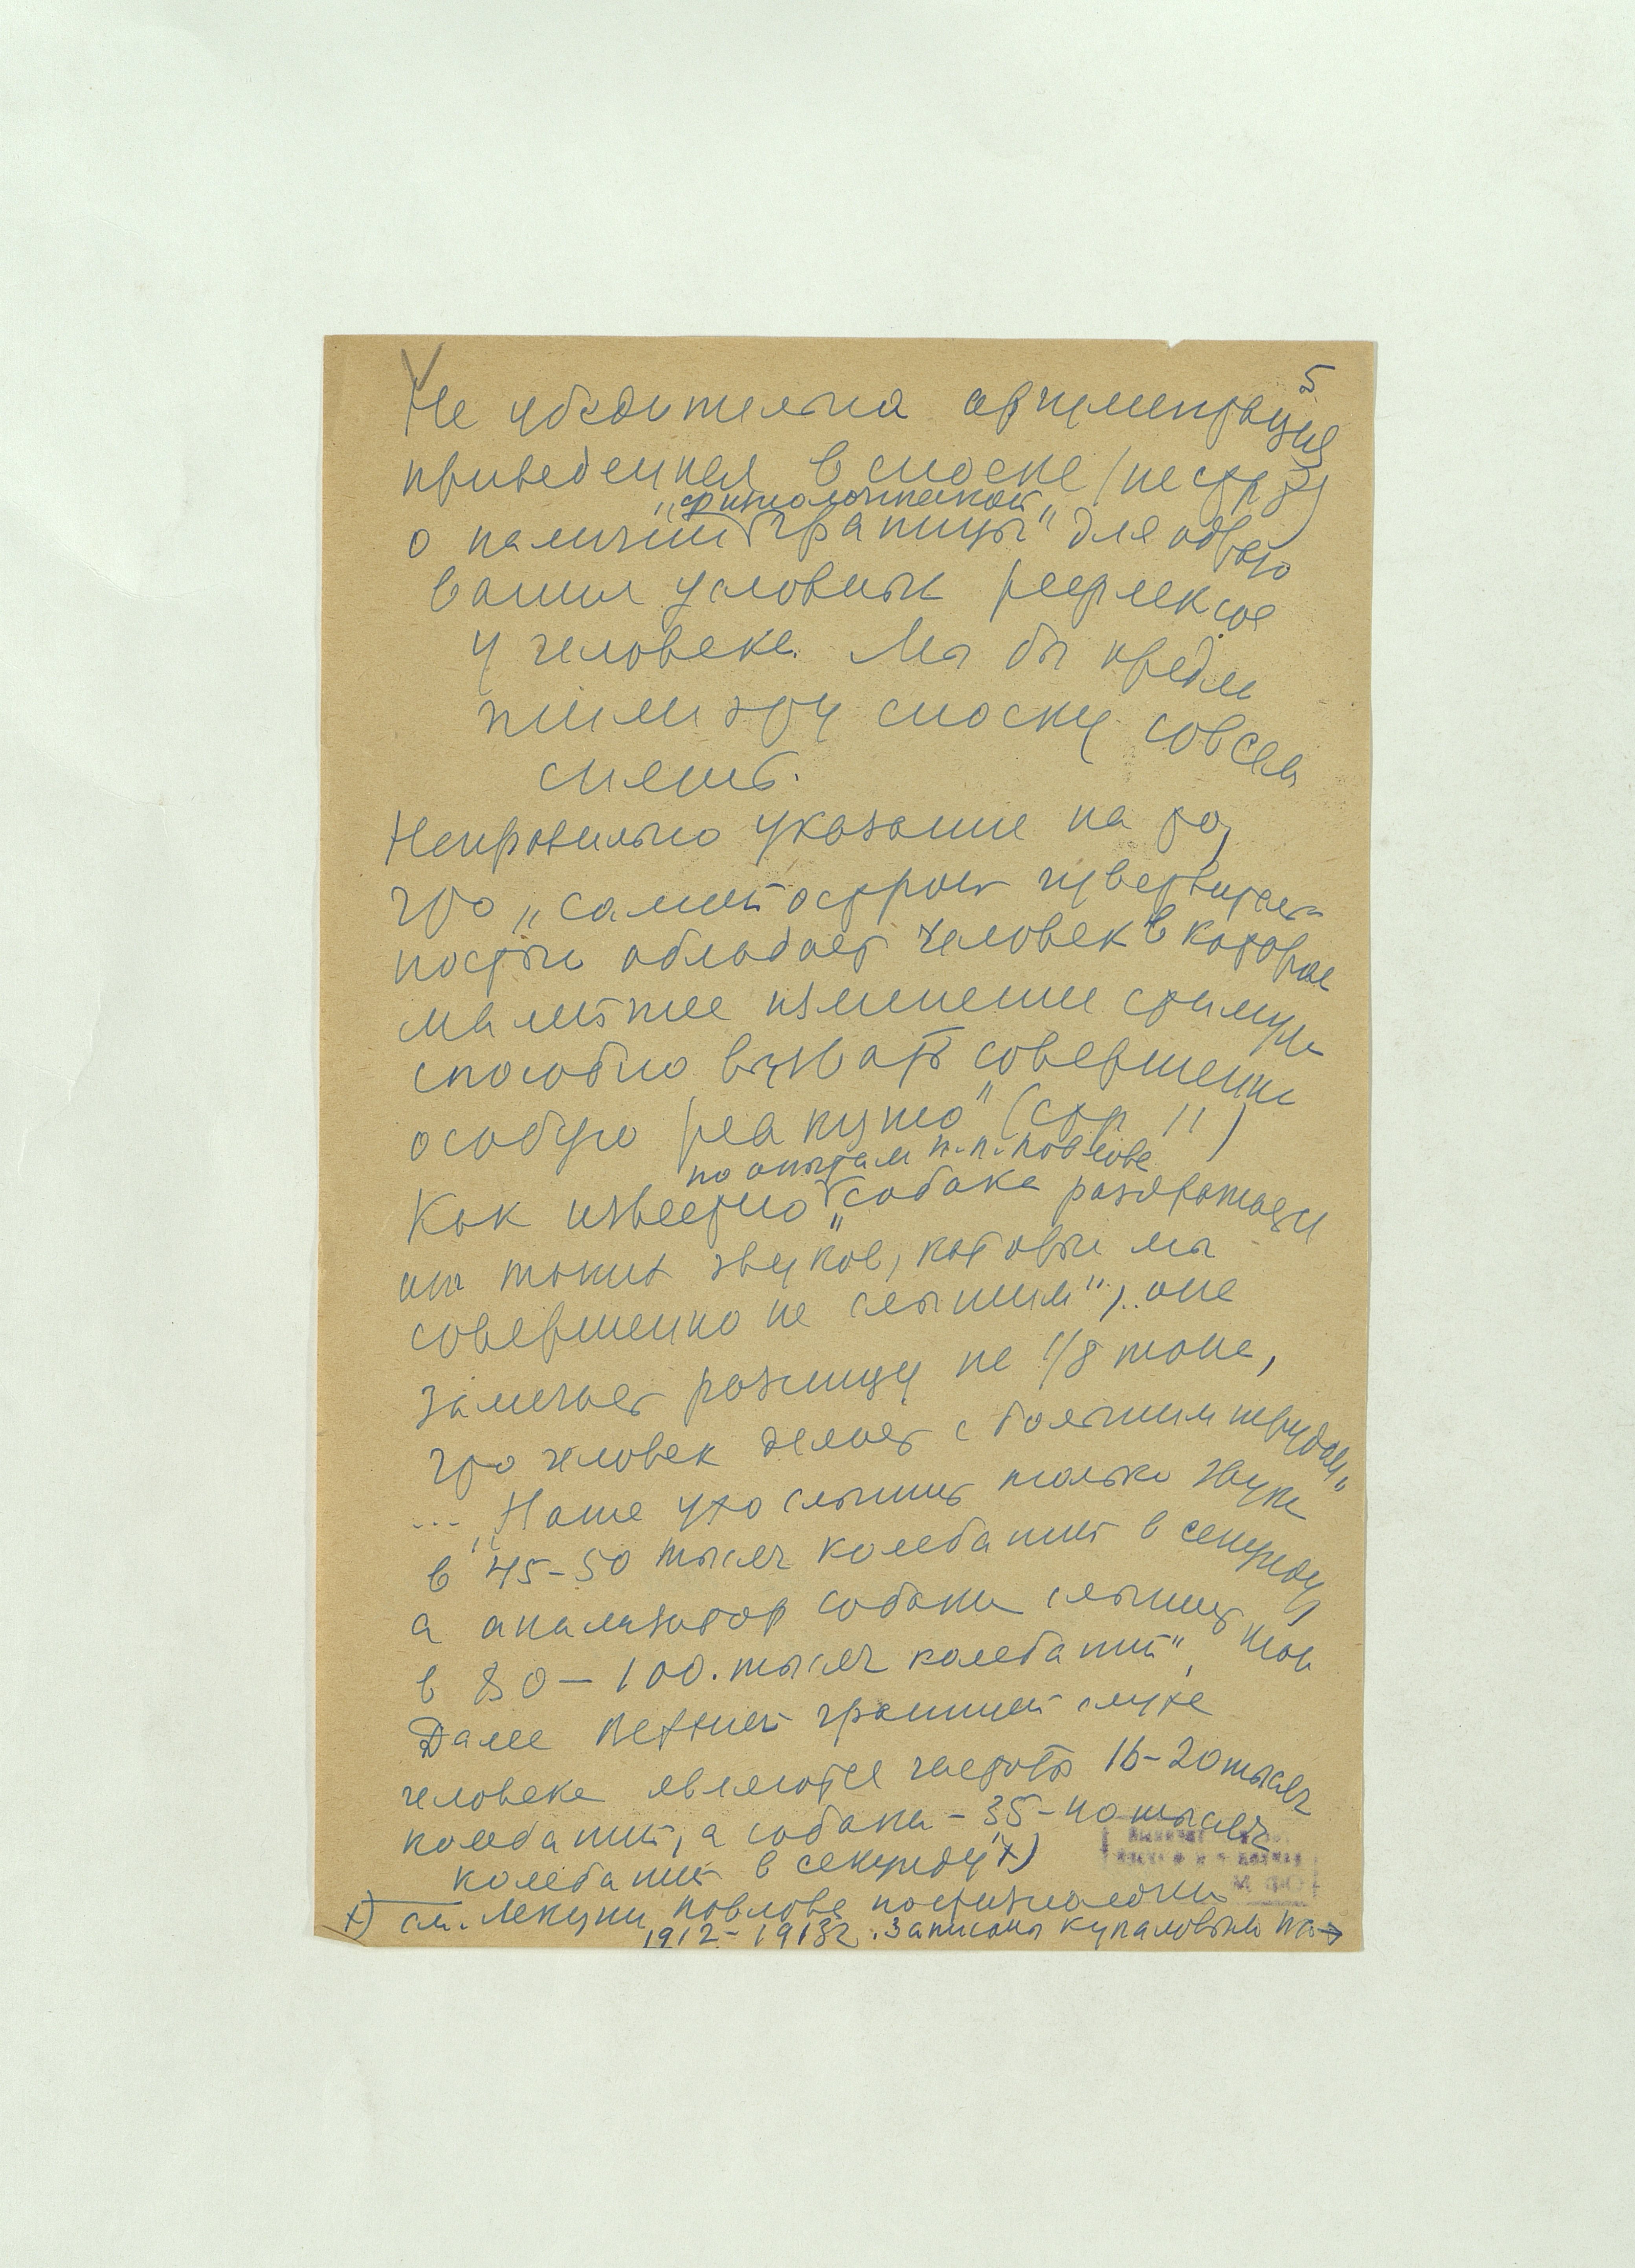 5
Не убедительна аргументация
приведенная в сноске (на стр 3)
„физиологической"
о наличии границы" для образо
вания условных рефлексов
у человека. Мы бы предло
жили эту сноску совсем
снять.
Неправильно указание на то,
что „самой острой чувствитель
ностью обладает человек в котором
малейшее изменение стимула
способно вызвать совершенно
особую реакцию" (стр 11)
по опытам И.П. Павлова
Как известно „собака раздражается
от таких звуков, которых мы
совершенно не слышим", она
замечает разницу на 1/8 тона,
что человек делает с большим трудом"
... „Наше ухо слышит только звуки
в 45-50 тысяч колебаний в секунду,
а анализатор собаки слышит тон
в 80-100. тысяч колебаний",
Далее верхней границей слуха
человека являются частоты 16-20 тысяч
колебаний, а собаки - 35-40 тысяч
колебаний в секунду" х)
х) см. Лекции Павлова по физиологии
1912-1913 г. Записаны Купаловым П.С. →